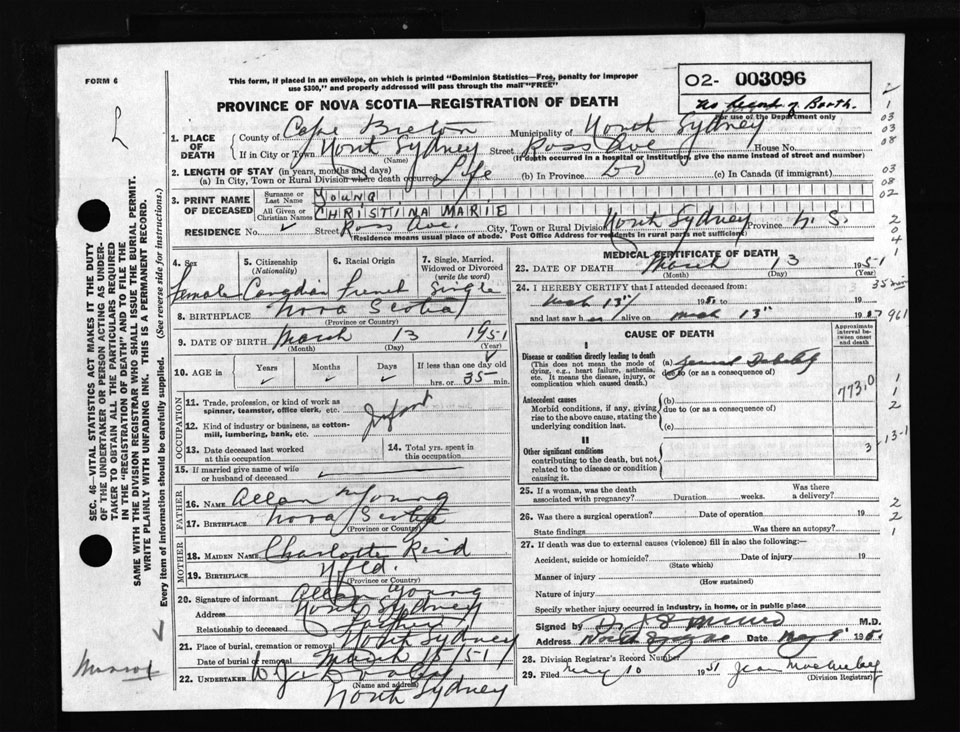 FORM 6
This form, if placed in an envelope, on which is printed "Dominion Statistics—Free, penalty for improper
use $300," and properly addressed will pass through the mail "FREE"
02- 003096
No Record of Birth.
For use of the Department only
PROVINCE OF NOVA SCOTIA—REGISTRATION OF DEATH
1. PLACE OF DEATH
County of Cape Breton Municipality of North Sydney
If in City or Town North Sydney (Name) Street Ross Ave House No.
(If death occurred in a hospital or institution, give the name instead of street and number)
2. LENGTH OF STAY (in years, months and days)
(a) In City, Town or Rural Division where death occurred Life (b) In Province Do (c) In Canada (if immigrant)
3. PRINT NAME OF DECEASED
Surname or Last Name YOUNG
All Given or Christian Names CHRISTINA MARIE
RESIDENCE No. Street Ross Ave. City, Town or Rural Division North Sydney Province N.S.
(Residence means usual place of abode. Post Office Address for residents in rural parts not sufficient)
4. Sex Female
5. Citizenship (Nationality) Canadian
6. Racial Origin French
7. Single, Married, Widowed or Divorced (write the word) Single
8. BIRTHPLACE Nova Scotia
(Province or Country)
9. DATE OF BIRTH March 13 1951
(Month) (Day) (Year)
10. AGE in Years Months Days If less than one day old
hrs. or 35 min.
OCCUPATION
11. Trade, profession, or kind of work as
spinner, teamster, office clerk, etc. Infant
12. Kind of industry or business, as cotton-
mill, lumbering, bank, etc.
13. Date deceased last worked
at this occupation
14. Total yrs. spent in
this occupation
15. If married give name of wife
or husband of deceased
FATHER
16. NAME Allan Young
17. BIRTHPLACE Nova Scotia
(Province or Country)
MOTHER
18. MAIDEN NAME Charlotte Reid
19. BIRTHPLACE Nfld.
(Province or Country)
20. Signature of informant Allan Young
Address North Sydney
Relationship to deceased Father
21. Place of burial, cremation or removal North Sydney
Date of burial or removal March /51
22. UNDERTAKER
(Name and address) North Sydney
MEDICAL CERTIFICATE OF DEATH
23. DATE OF DEATH March 13 1951
(Month) (Day) (Year)
24. I HEREBY CERTIFY that I attended deceased from:
Mch 13th 1951 to 19
and last saw her alive on Mch 13th 19
35 min
961
CAUSE OF DEATH
Approximate interval between onset and death
I
Disease or condition directly leading to death
(This does not mean the mode of
dying, e.g., heart failure, asthenia,
etc. It means the disease, injury, or
complication which caused death.)
(a) Debility
due to (or as a consequence of)
773.0
Antecedent causes
Morbid conditions, if any, giving
rise to the above cause, stating the
underlying condition last.
(b)
due to (or as a consequence of)
(c)
II
Other significant conditions
contributing to the death, but not
related to the disease or condition
causing it.
3
25. If a woman, was the death
associated with pregnancy? Duration weeks. Was there
a delivery?
26. Was there a surgical operation? Date of operation 19
State findings Was there an autopsy?
27. If death was due to external causes (violence) fill in also the following:—
Accident, suicide or homicide? Date of injury 19
(State which)
Manner of injury
(How sustained)
Nature of injury
Specify whether injury occurred in industry, in home, or in public place
Signed by Dr. M.D.
Address North Sydney Date May 195
28. Division Registrar's Record Number
29. Filed May 10 1951 Jean
(Division Registrar)
SEC. 46—VITAL STATISTICS ACT MAKES IT THE DUTY
OF THE UNDERTAKER OR PERSON ACTING AS UNDER-
TAKER TO OBTAIN ALL THE PARTICULARS REQUIRED
IN THE "REGISTRATION OF DEATH" AND TO FILE THE
SAME WITH THE DIVISION REGISTRAR WHO SHALL ISSUE THE BURIAL PERMIT.
WRITE PLAINLY WITH UNFADING INK. THIS IS A PERMANENT RECORD.
Every item of information should be carefully supplied. (See reverse side for instructions.)